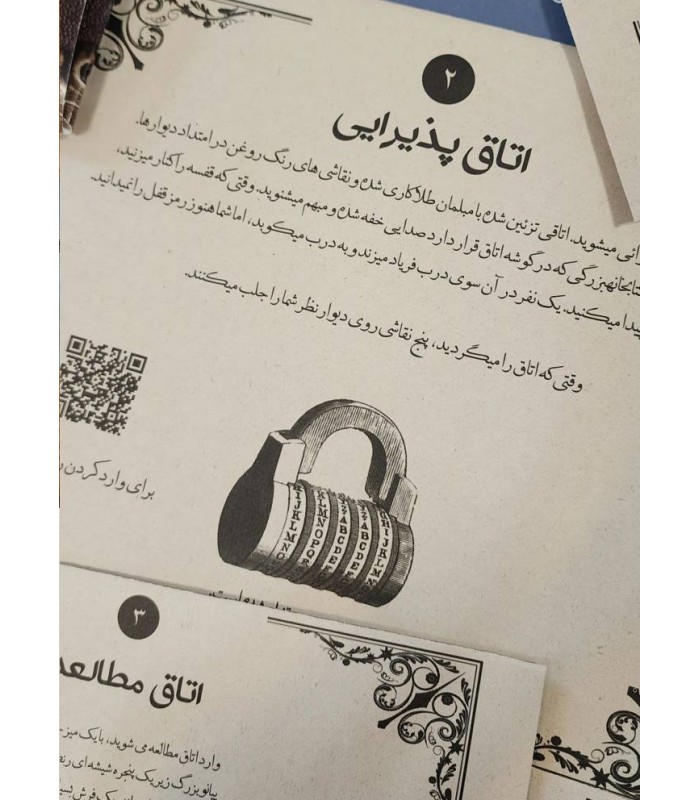 ۲
اتاق پذیرایی
میشوید. اتاقی تزئین شده با مبلمان طلاکاری شده و نقاشی های رنگ روغن در امتداد دیوارها.
بزرگی که در گوشه اتاق قرار دارد صدایی خفه شده و مبهم میشنوید. وقتی که قفسه را کنار میزنید،
میکنید. یک نفر در آن سوی درب فریاد میزند و به درب میکوبد، اما شما هنوز رمز قفل را نمیدانید.
وقتی که اتاق را میگردید، پنج نقاشی روی دیوار نظر شما را جلب میکنند.
برای وارد کردن
۳
اتاق مطالعه
وارد اتاق مطالعه می شوید، با یک میز
پیانو بزرگ زیر یک پنجره شیشه ای
یک فرش